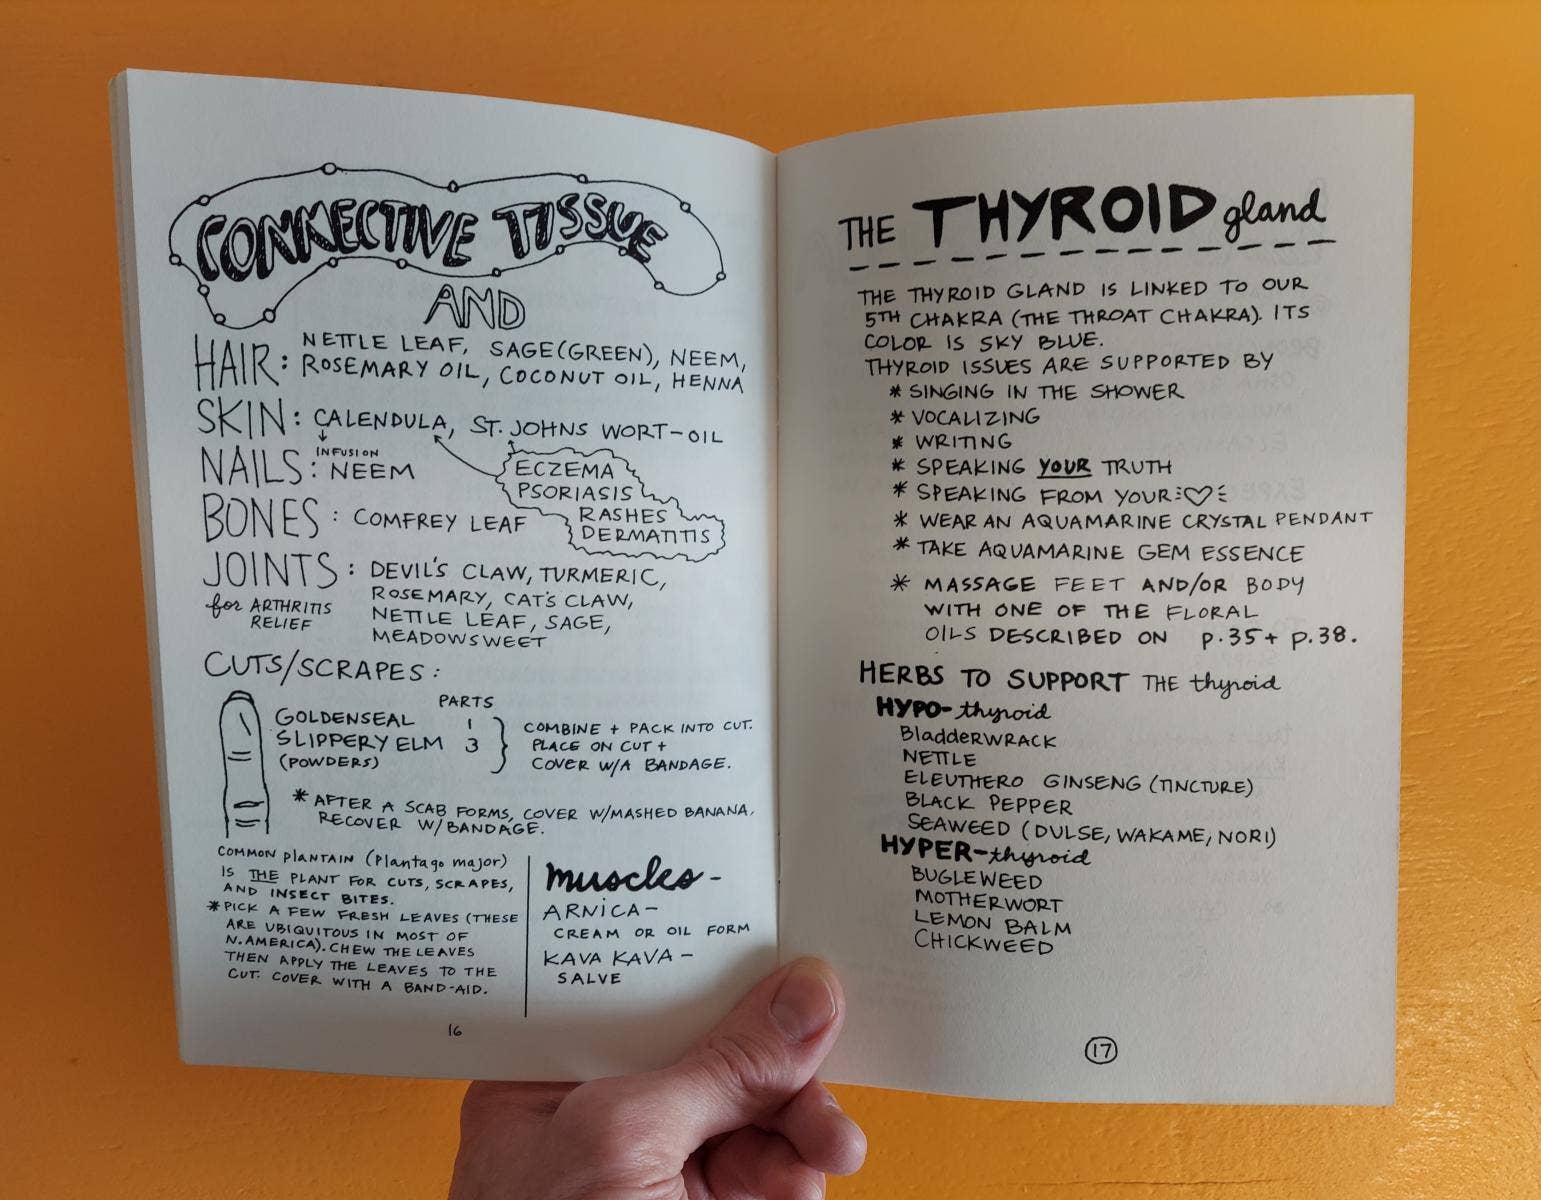 CONNECTIVE TISSUE
AND
HAIR: NETTLE LEAF, SAGE (GREEN), NEEM,
ROSEMARY OIL, COCONUT OIL, HENNA
SKIN: CALENDULA, ST. JOHNS WORT-OIL
INFUSION
NAILS: NEEM
ECZEMA
PSORIASIS
RASHES
DERMATITIS
BONES: COMFREY LEAF
JOINTS: DEVIL'S CLAW, TURMERIC,
for ARTHRITIS
RELIEF
ROSEMARY, CAT'S CLAW,
NETTLE LEAF, SAGE,
MEADOWSWEET
CUTS/SCRAPES:
PARTS
GOLDENSEAL 1
SLIPPERY ELM 3
(POWDERS)
COMBINE + PACK INTO CUT.
PLACE ON CUT +
COVER W/A BANDAGE.
* AFTER A SCAB FORMS, COVER W/MASHED BANANA.
RECOVER W/BANDAGE.
COMMON PLANTAIN (Plantago major)
IS THE PLANT FOR CUTS, SCRAPES,
AND INSECT BITES.
* PICK A FEW FRESH LEAVES (THESE
ARE UBIQUITOUS IN MOST OF
N. AMERICA). CHEW THE LEAVES
THEN APPLY THE LEAVES TO THE
CUT. COVER WITH A BAND-AID.
muscles-
ARNICA-
CREAM OR OIL FORM
KAVA KAVA-
SALVE
16
THE THYROID gland
THE THYROID GLAND IS LINKED TO OUR
5TH CHAKRA (THE THROAT CHAKRA). ITS
COLOR IS SKY BLUE.
THYROID ISSUES ARE SUPPORTED BY
* SINGING IN THE SHOWER
* VOCALIZING
* WRITING
* SPEAKING YOUR TRUTH
* SPEAKING FROM YOUR ♡
* WEAR AN AQUAMARINE CRYSTAL PENDANT
* TAKE AQUAMARINE GEM ESSENCE
* MASSAGE FEET AND/OR BODY
WITH ONE OF THE FLORAL
OILS DESCRIBED ON p.35+ p.38.
HERBS TO SUPPORT THE thyroid
HYPO-thyroid
BladdeRWRACK
NETTLE
ELEUTHERO GINSENG (TINCTURE)
BLACK PEPPER
SEAWEED (DULSE, WAKAME, NORI)
HYPER-thyroid
BUGLEWEED
MOTHERWORT
LEMON BALM
CHICKWEED
17